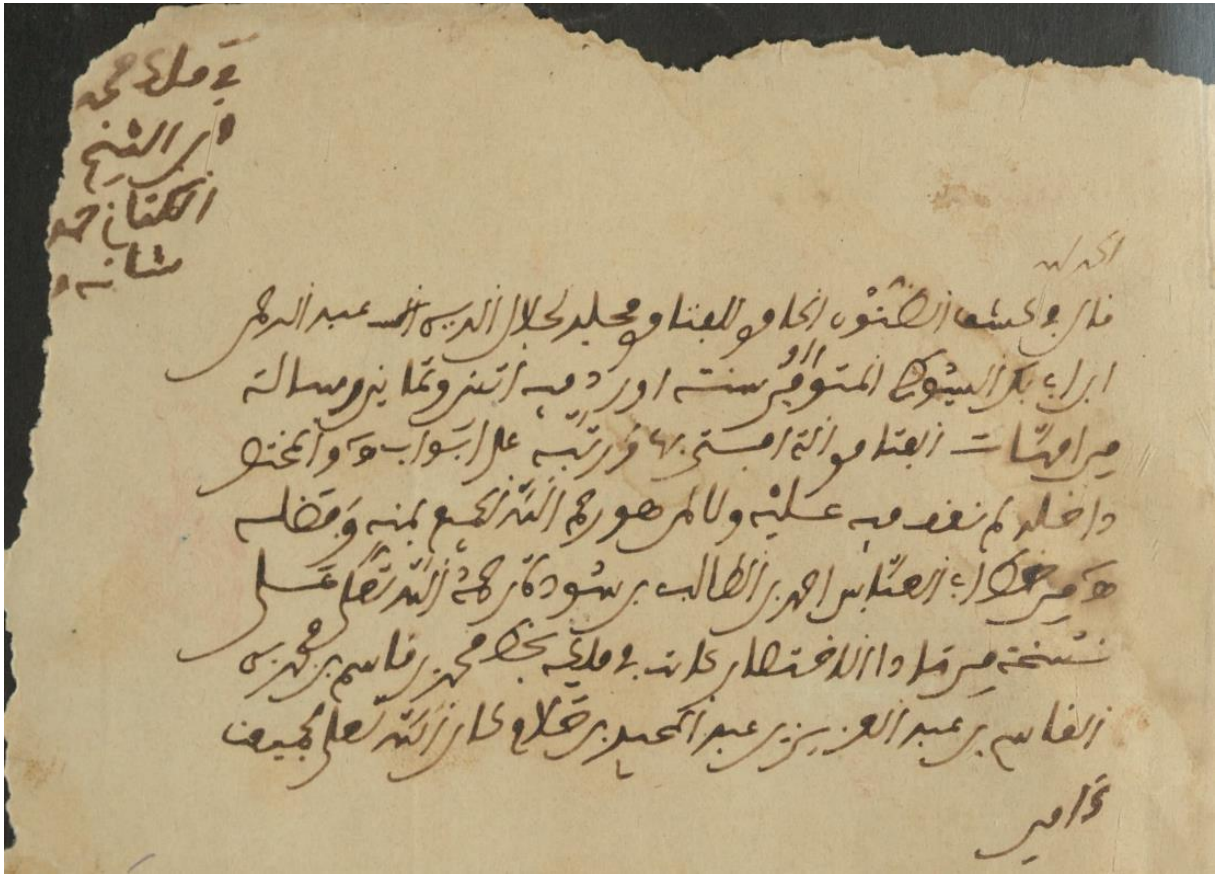 في ملك محمد
ابن الشيخ
الكتاني
شانه
الحمد لله
قال في كشف الظنون الحاوي للفتاوي مجلد لجلال الدين عبد الرحمن
ابن ابي بكر السيوطي المتوفى سنة اورد فيه اثنين وثمانين رسالة
من امهات الفتاوي التي افتى بها ورتبه على ابواب هـ والمختصر
داخله لم نقف فيه عليه ولا لمن هو رحم الله الجميع بمنه وفضله
هـ من خط ابي العباس احمد بن الطالب بن سودة رحمه الله تعلى على
نسخة من هاذا الاختصار كانت في ملكه بخط محمد بن قاسم بن محمد بن
القاسم بن عبد العزيز بن عبد المجيد بن كان الله تعلى لجميعهم
ءامين